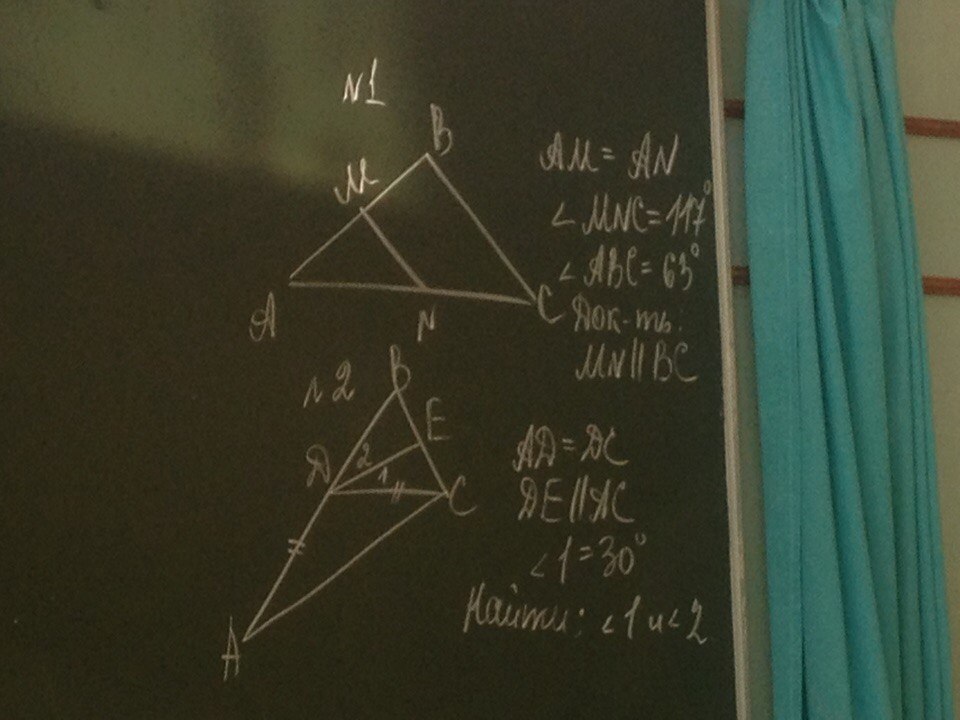 N1
B
M
A
N
C
AM = AN
∠ MNC = 117°
∠ ABC = 63°
Док-ть:
MN || BC
N2
B
E
D
2
1
C
A
AD = DC
DE || AC
∠1 = 30°
Найти: ∠1 и ∠2